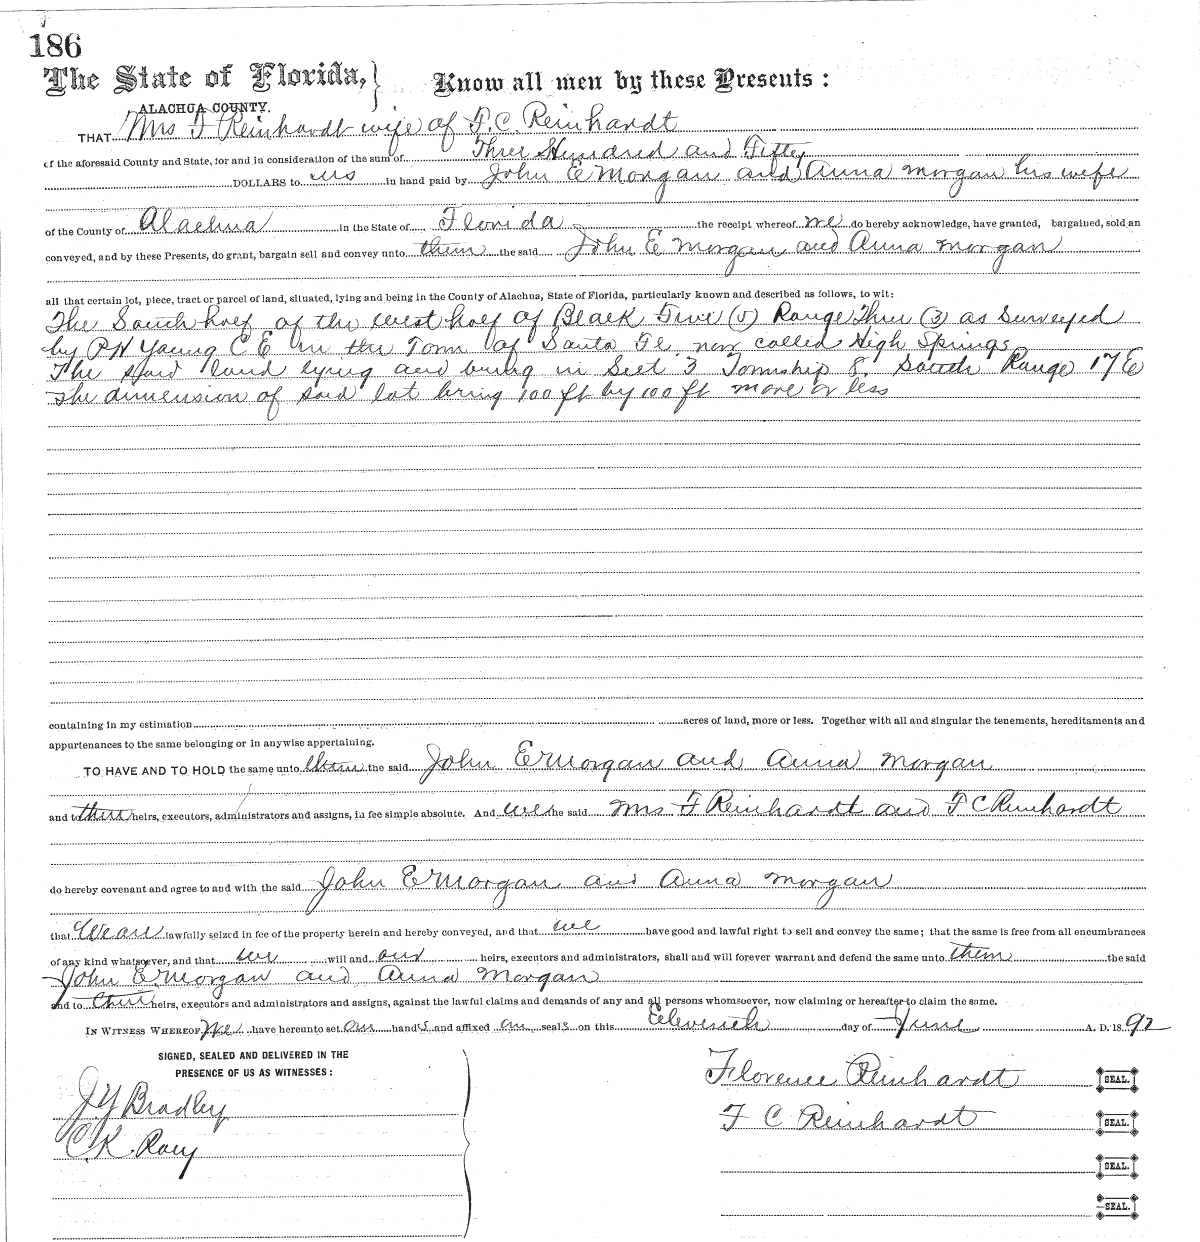 186
The State of Florida, } Know all men by these Presents :
ALACHUA COUNTY.
THAT Mrs F Reinhardt wife of F.C. Reinhardt
of the aforesaid County and State, for and in consideration of the sum of Three Hundred and Fifty
DOLLARS to us in hand paid by John E Morgan and Anna Morgan his wife
of the County of Alachua in the State of Florida the receipt whereof we do hereby acknowledge, have granted, bargained, sold an
conveyed, and by these Presents, do grant, bargain sell and convey unto them the said John E Morgan and Anna Morgan
all that certain lot, piece, tract or parcel of land, situated, lying and being in the County of Alachua, State of Florida, particularly known and described as follows, to wit:
The South half of the West half of Block Five (5) Range Three (3) as Surveyed
by P N Young C E in the Town of Santa Fe now called High Springs
The said land lying and being in Sect 3 Township 8. South Range 17 E
The dimension of said lot being 100 ft by 100 ft more or less
containing in my estimation acres of land, more or less. Together with all and singular the tenements, hereditaments and
appurtenances to the same belonging or in anywise appertaining.
TO HAVE AND TO HOLD the same unto them the said John E Morgan and Anna Morgan
and to their heirs, executors, administrators and assigns, in fee simple absolute. And we the said Mrs F Reinhardt and F C Reinhardt
do hereby covenant and agree to and with the said John E Morgan and Anna Morgan
that We are lawfully seized in fee of the property herein and hereby conveyed, and that we have good and lawful right to sell and convey the same; that the same is free from all encumbrances
of any kind whatsoever, and that we will and our heirs, executors and administrators, shall and will forever warrant and defend the same unto them the said
John E Morgan and Anna Morgan
and to their heirs, executors and administrators and assigns, against the lawful claims and demands of any and all persons whomsoever, now claiming or hereafter to claim the same.
IN WITNESS WHEREOF, We have hereunto set our hands and affixed our seals on this Eleventh day of June A. D. 1892
SIGNED, SEALED AND DELIVERED IN THE
PRESENCE OF US AS WITNESSES :
J Y Bradley
C. K. Rory
Florence Reinhardt SEAL.
F C Reinhardt SEAL.
SEAL.
SEAL.